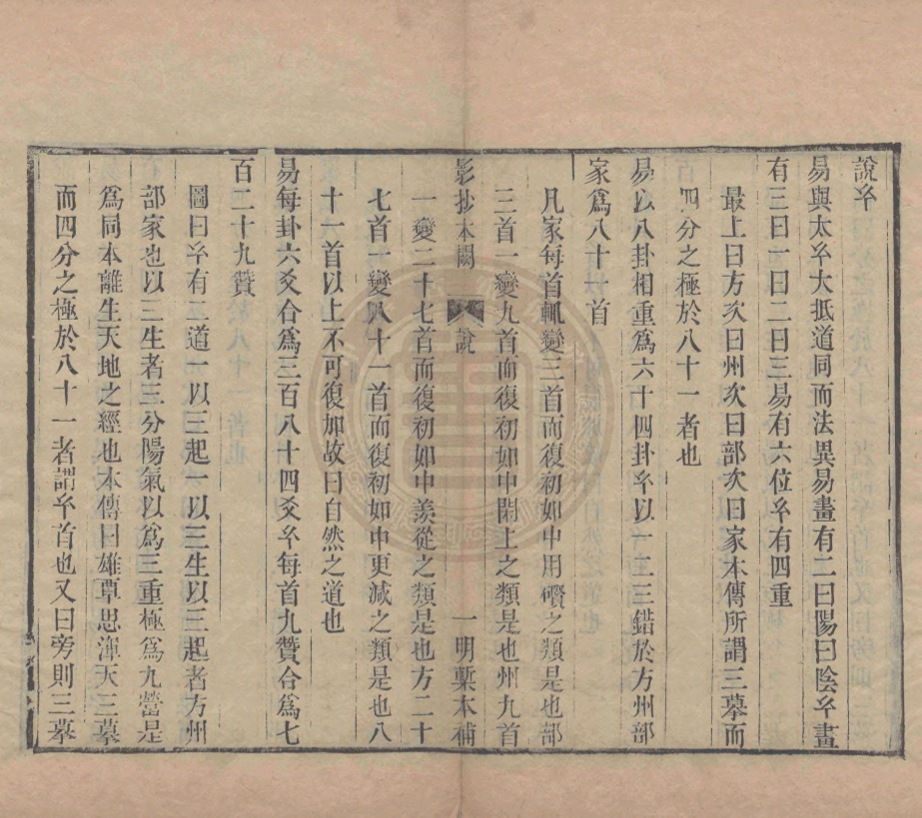 說玄
易與太玄大抵道同而法異易畫有二曰陽曰陰玄畫
有三曰一曰二曰三易有六位玄有四重
最上曰方次曰州次曰部次曰家本傳所謂三摹而
四分之極於八十一者也
易以八卦相重爲六十四卦玄以一二三錯於方州部
家爲八十一首
凡家每首輒變三首而復初如中周礥之類是也部
三首一變九首而復初如中閑上之類是也州九首
影抄本闕 說 一 明槧本補
一變二十七首而復初如中羨從之類是也方二十
七首一變八十一首而復初如中更減之類是也八
十一首以上不可復加故曰自然之道也
易每卦六爻合爲三百八十四爻玄每首九贊合爲七
百二十九贊
圖曰玄有二道一以三起一以三生以三起者方州
部家也以三生者三分陽氣以爲三重極爲九營是
爲同本離生天地之經也本傳曰雄覃思渾天三摹
而四分之極於八十一者謂玄首也又曰旁則三摹